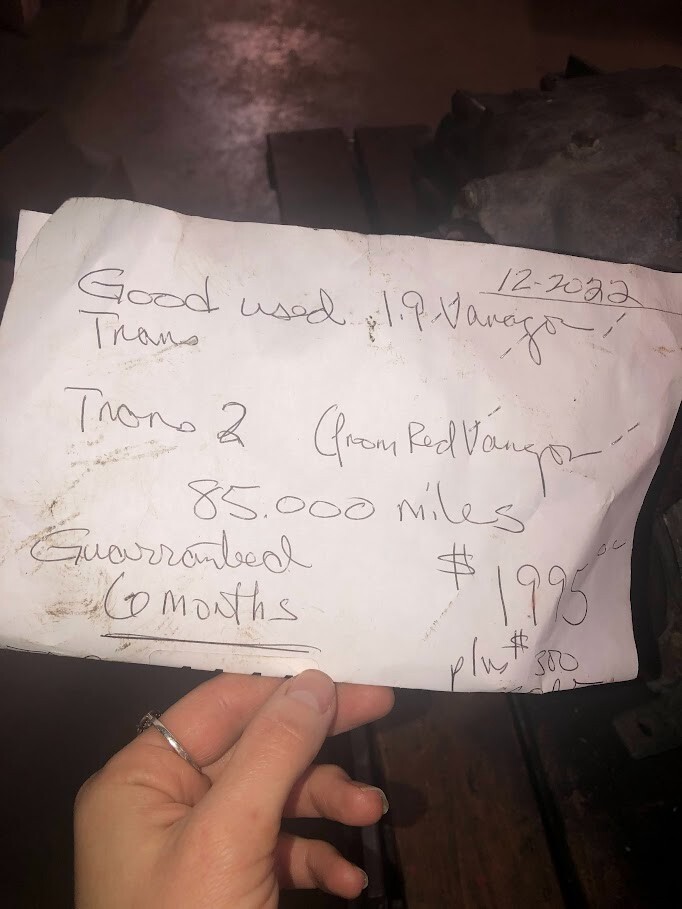 12-2022
Good used 1.9 Vanagon
Trans
Trans 2 (from Red Vanagon
85.000 miles
Guarranteed
6 months
$ 1995
plus $300